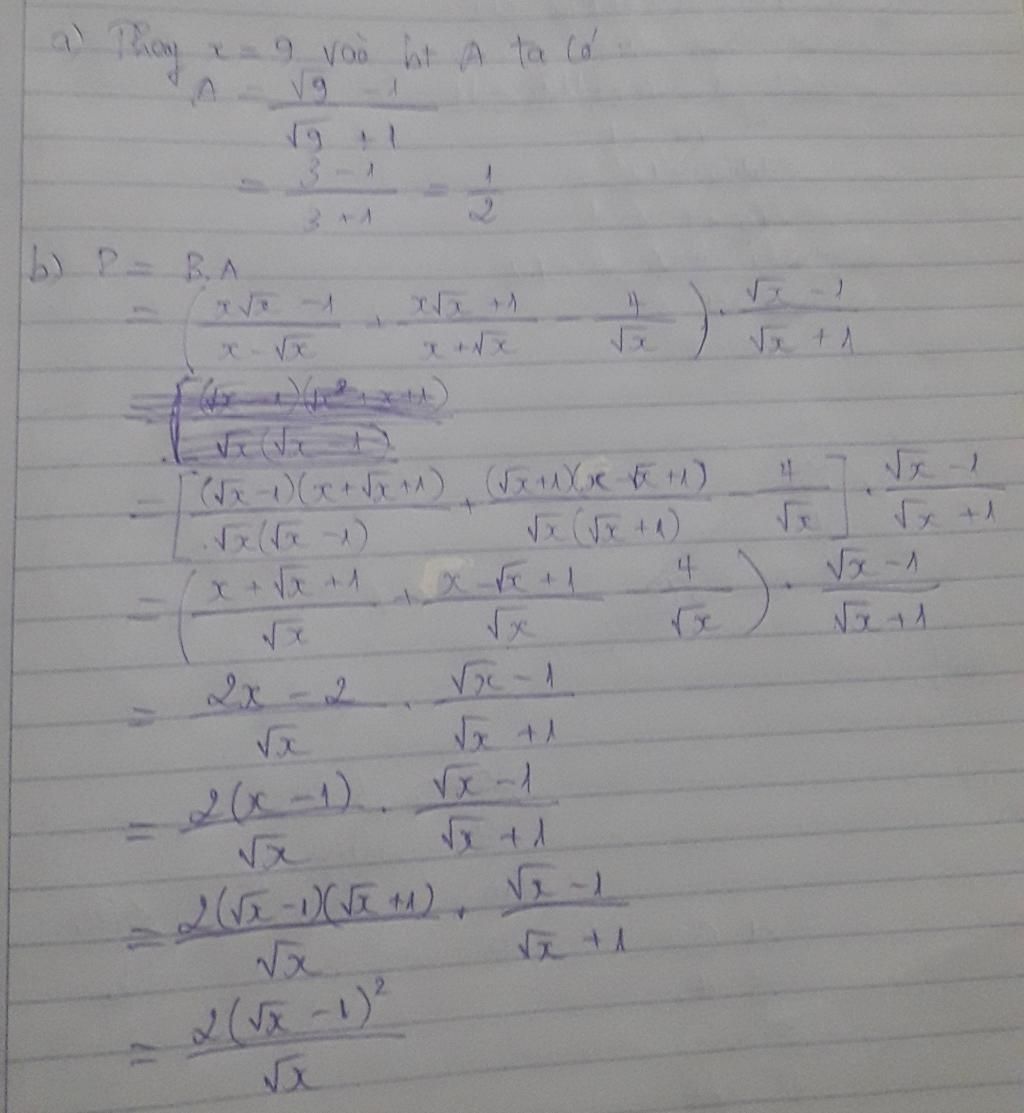 a) Thay x = 9 vào bt A ta có
A = (√9 - 1)/(√9 + 1)
= (3 - 1)/(3 + 1) = 1/2
b) P = B.A
= ((x√x - 1)/(x - √x) + (x√x + 1)/(x + √x) - 4/√x) . (√x - 1)/(√x + 1)
= [((√x - 1)(x + √x + 1))/(√x(√x - 1)) + ((√x + 1)(x - √x + 1))/(√x(√x + 1)) - 4/√x] . (√x - 1)/(√x + 1)
= ((x + √x + 1)/√x + (x - √x + 1)/√x - 4/√x) . (√x - 1)/(√x + 1)
= (2x - 2)/√x . (√x - 1)/(√x + 1)
= 2(x - 1)/√x . (√x - 1)/(√x + 1)
= 2(√x - 1)(√x + 1)/√x . (√x - 1)/(√x + 1)
= 2(√x - 1)²/√x